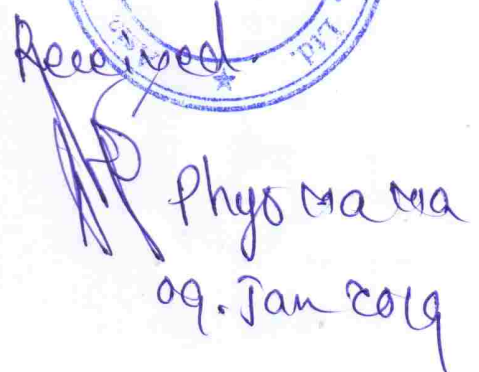 Ltd.
Received.
Phyo Ma Ma
09. Jan 2019